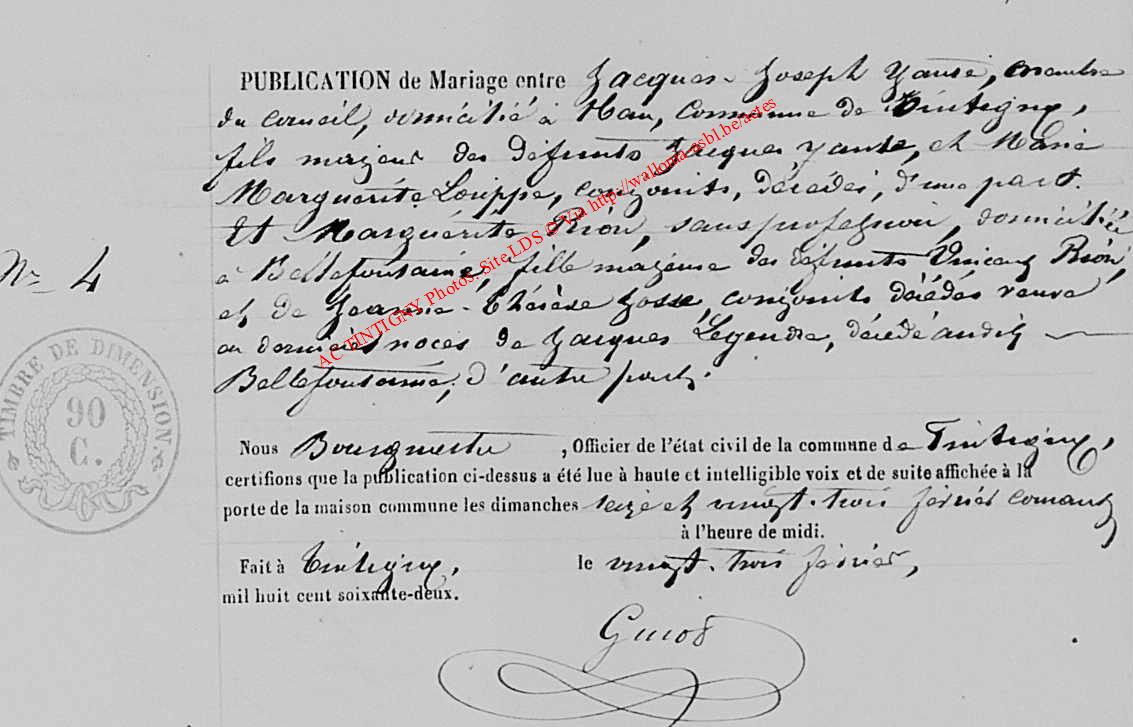 PUBLICATION de Mariage entre Jacques-Joseph Yante, membre
du conseil, domicilié à Han, Commune de Tintigny,
fils majeur des défunts Jacques Yante, et Marie
Marguerite Louppe, conjoints, décédés, d'une part.
Et Marguérite Rion, sans profession, domiciliée
à Bellefontaine, fille majeure des défunts Vincent Rion,
et de Jeanne-Thérèse Josse, conjoints décédés veuve
en dernières noces de Jacques Legendre, décédé audit
Bellefontaine, d'autre part.
Nº 4
TIMBRE DE DIMENSION
90
C.
AC TINTIGNY Photos: Site LDS © Via http://walloma-asbl.be/actes
Nous , Officier de l'état civil de la commune de Tintigny,
certifions que la publication ci-dessus a été lue à haute et intelligible voix et de suite affichée à la
porte de la maison commune les dimanches seize et vingt-trois février courant
à l'heure de midi.
Fait à Tintigny, le vingt-trois février,
mil huit cent soixante-deux.